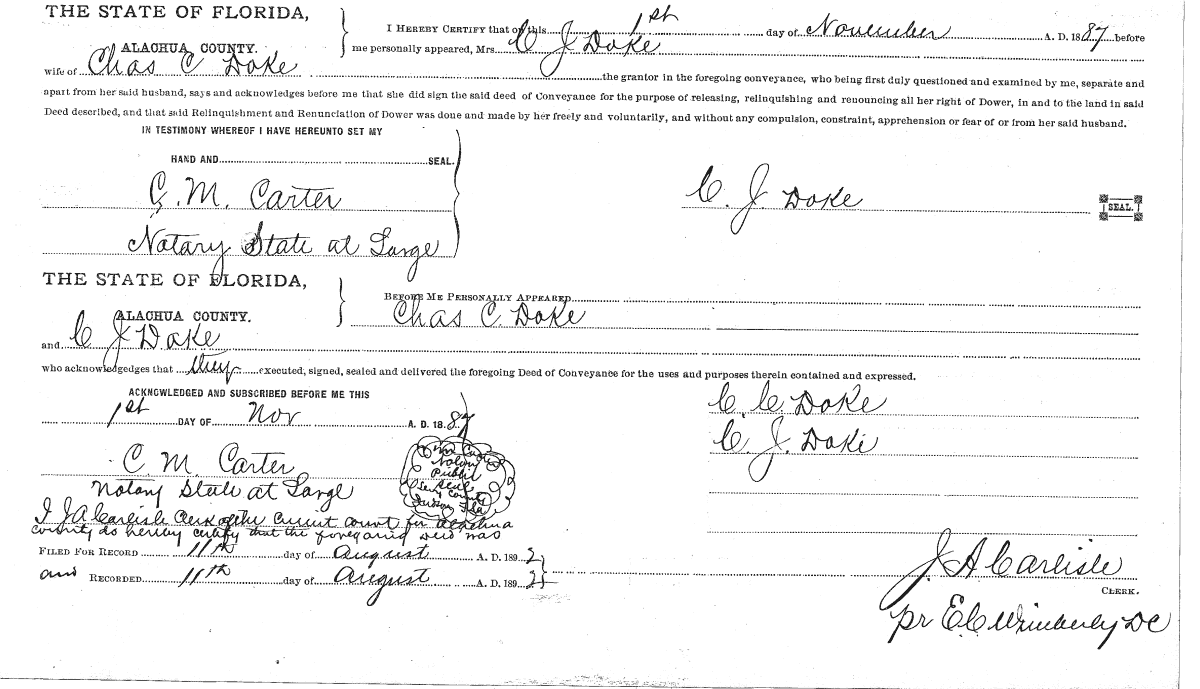 THE STATE OF FLORIDA,
ALACHUA COUNTY.
I HEREBY CERTIFY that on this 1st day of November A. D. 1887 before
me personally appeared, Mrs. C J Doke
wife of Chas C Doke the grantor in the foregoing conveyance, who being first duly questioned and examined by me, separate and
apart from her said husband, says and acknowledges before me that she did sign the said deed of Conveyance for the purpose of releasing, relinquishing and renouncing all her right of Dower, in and to the land in said
Deed described, and that said Relinquishment and Renunciation of Dower was done and made by her freely and voluntarily, and without any compulsion, constraint, apprehension or fear of or from her said husband.
IN TESTIMONY WHEREOF I HAVE HEREUNTO SET MY
HAND AND SEAL.
C. M. Carter
C. J. Doke
SEAL.
Notary State at Large
THE STATE OF FLORIDA,
ALACHUA COUNTY.
BEFORE ME PERSONALLY APPEARED
Chas C. Doke
and C J Doke
who acknowledges that they executed, signed, sealed and delivered the foregoing Deed of Conveyance for the uses and purposes therein contained and expressed.
ACKNOWLEDGED AND SUBSCRIBED BEFORE ME THIS
1st DAY OF Nov A. D. 1887
C. C. Doke
C. J. Doke
C. M. Carter
Notary State at Large
Notary
Public
Seal
County
Fla
I J A Carlisle Clerk of the Circuit Court for Alachua
County do hereby certify that the foregoing deed was
FILED FOR RECORD 11th day of August A. D. 1892
and RECORDED 11th day of August A. D. 1892
J. A Carlisle
CLERK.
pr E. C. Wimberly DC